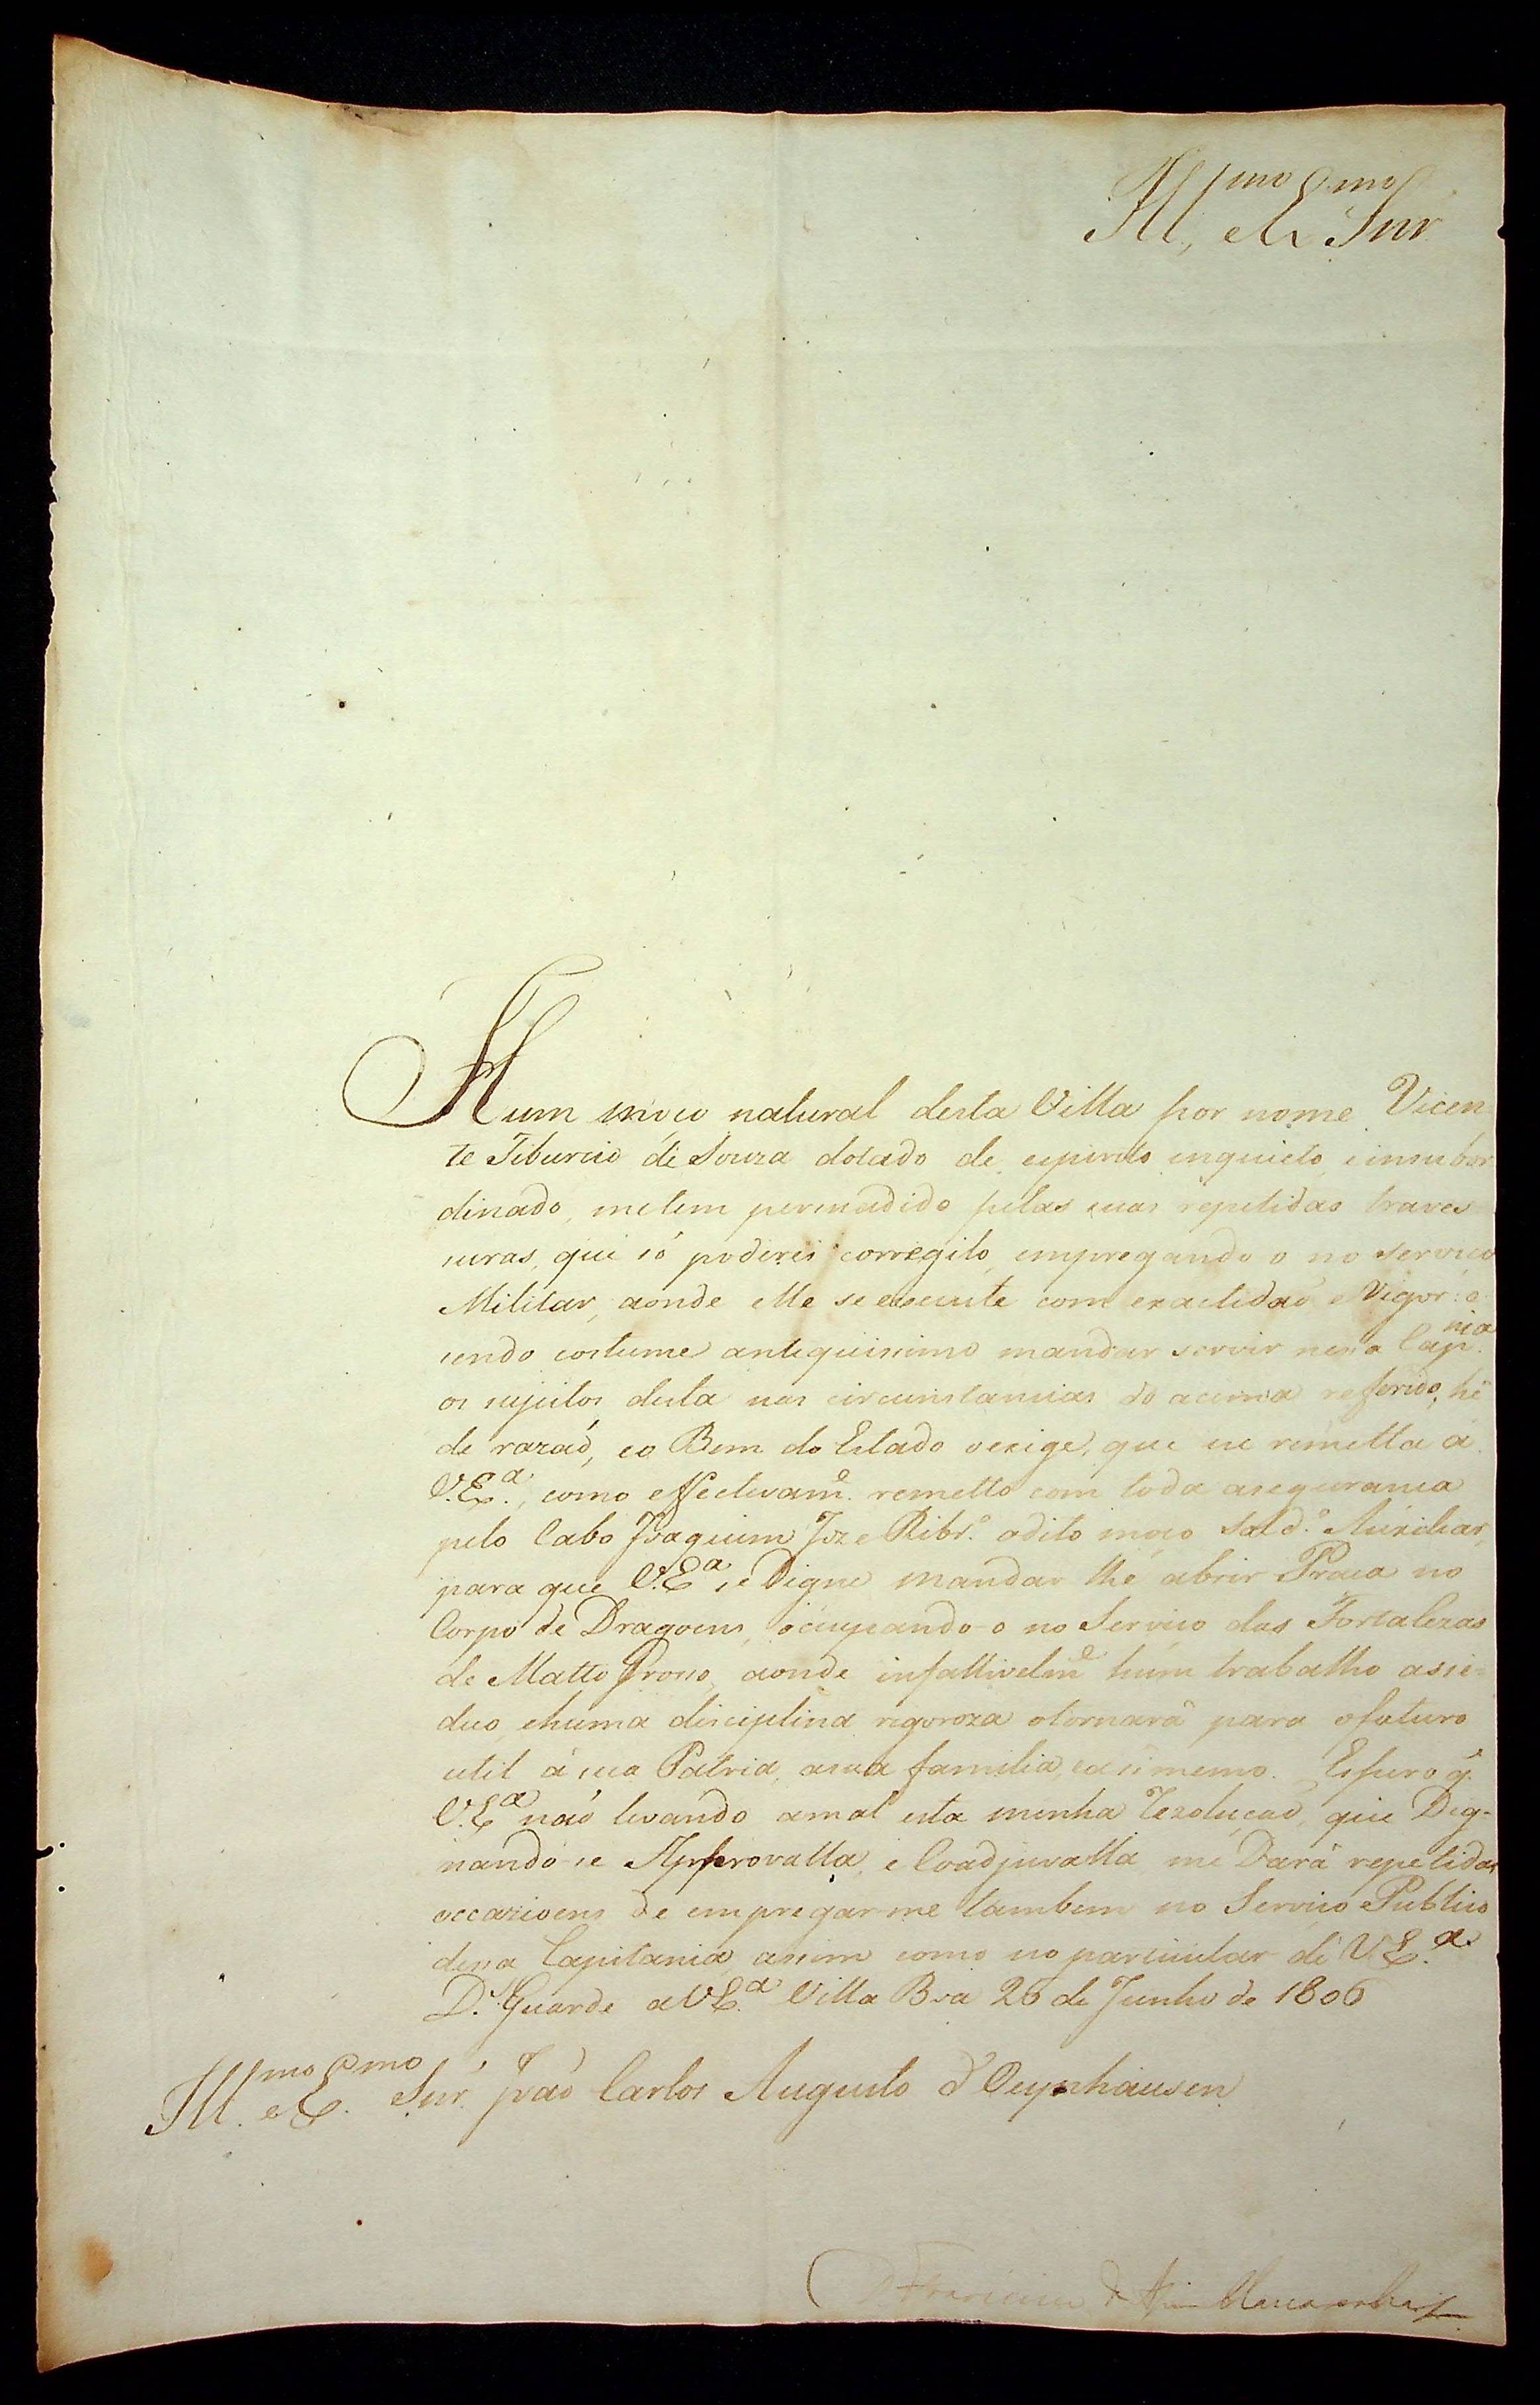 Ill.mo e Ex.mo Snr.
Hum moço natural desta Villa por nome Vicen
te Tiburcio de Souza dotado de espirito inquieto, e insubor
dinado, me tem persuadido pelas suas repetidas traves
suras, que só poderei corregilo, empregando o no serviço
Militar, aonde elle se execute com exactidaõ e Vigor: e
sendo costume antiquissimo mandar servir nessa Cap.nia
os sujeitos desta nas circunstancias do acima referido, hê
de razaõ, eo Bem do Estado o exige, que eu remetta á
V.Ex.a, como effectivam.e remetto com toda aseguranca
pelo Cabo Joaquim Joze Ribr.o odito moço Sold.o Auxiliar,
para que V.Ex.a se Digne mandar lhe abrir Praca no
Corpo de Dragoens, ocupando-o no Serviço das Fortalezas
de Matto Grosso, aonde infallivelm.e hum trabalho assi=
duo, ehuma disciplina rigoroza otornarâ para ofuturo
util á sua Patria, asua familia, easimesmo. Espero q.
V.Ex.a naõ levando amal esta minha Rezoluçaõ, que Dig-
nando-se Approvalla, e Coadjuvalla, me Darâ repetidas
occazioens de empregar-me tambem no Serviço Publico
dessa Capitania, assim como no particular de V.Ex.a
D.s Guarde a V.Ex.a Villa Boa 26 de Junho de 1806
Ill.mo e Ex.mo Snr. Joaõ Carlos Augusto d'Oeynhausen
D. Francisco d'Assis Mascarenhas